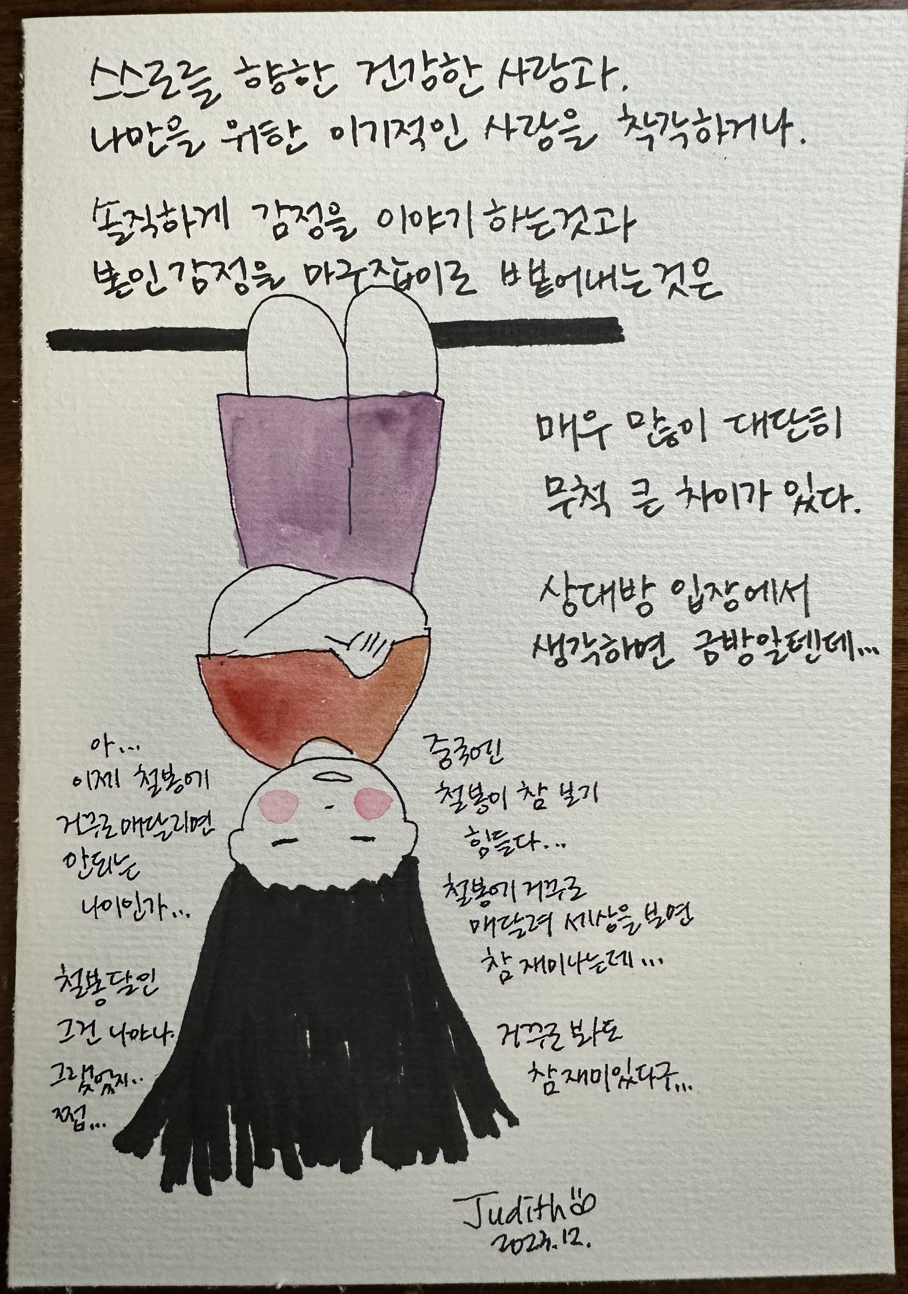 스스로를 향한 건강한 사랑과,
나만을 위한 이기적인 사랑을 착각하거나,
솔직하게 감정을 이야기하는것과
본인감정을 마구잡이로 뱉어내는것은
매우 많이 대단히
무척 큰 차이가 있다.
상대방 입장에서
생각하면 금방알텐데...
아...
이제 철봉에
거꾸로매달리면
안되는
나이인가...
철봉달인
그건 나야나.
그랬었지..
쩝...
중국엔
철봉이 참 보기
힘들다...
철봉에 거꾸로
매달려 세상을보면
참 재미나는데...
거꾸로 봐도
참재미있다구...
Judith
2023.12.